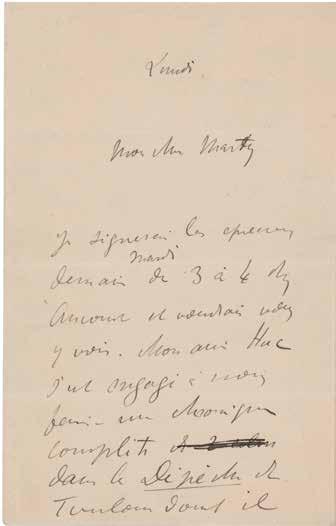 Lundi
Mon cher Marty
Je signerai les épreuves
mardi
demain de 3 à 4 chez
Ancourt et voudrais vous
y voir. Mon ami Huc
s'est engagé à nous
faire une chronique
complète
dans la Dépêche de
Toulouse dont il